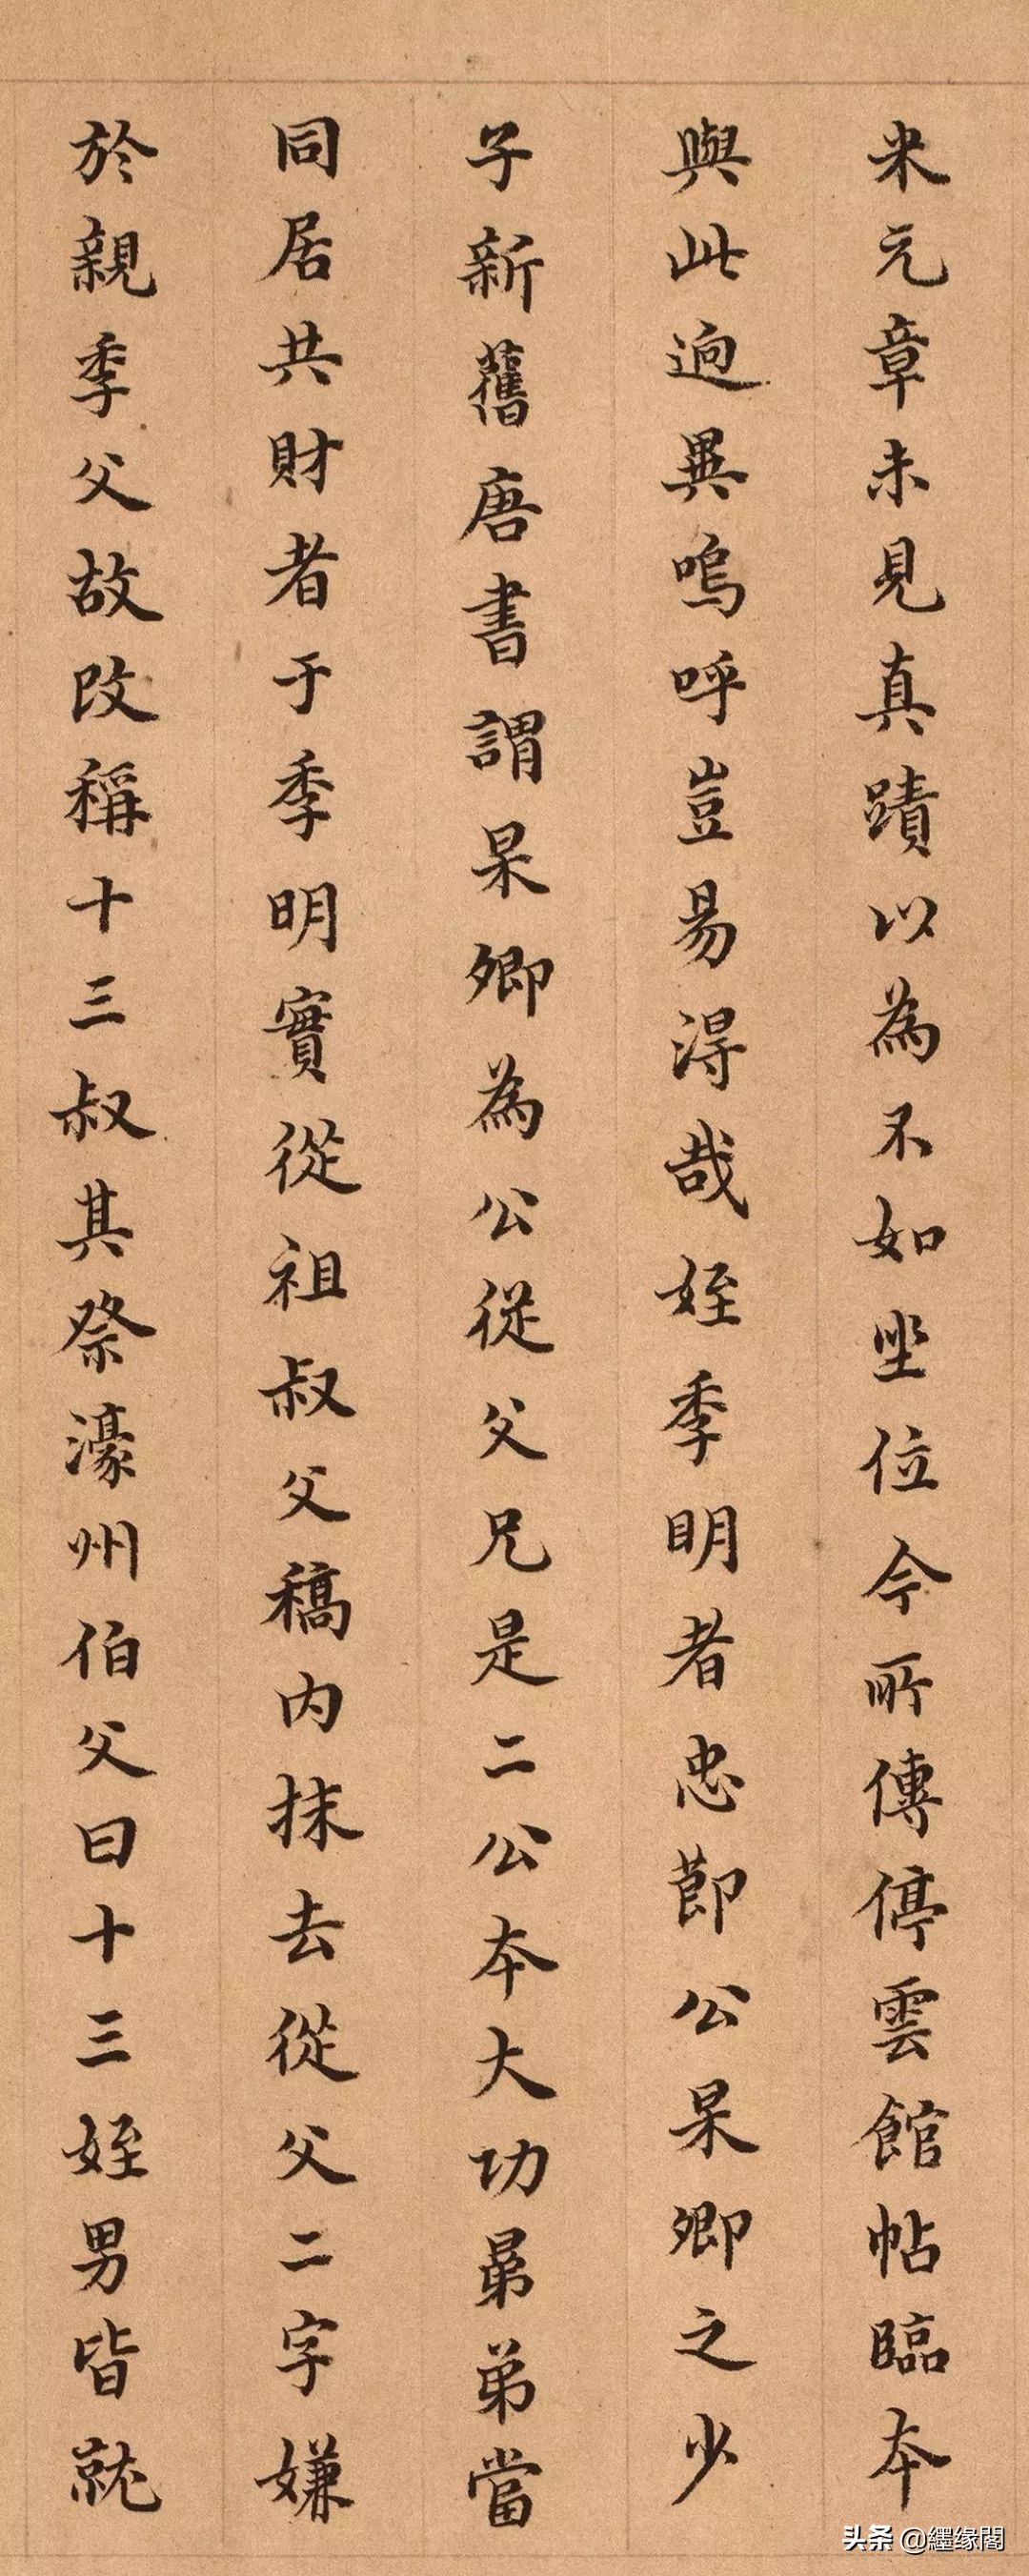 米元章未見真蹟以為不如坐位今所傳停雲館帖臨本
與此逈異嗚呼豈易淂哉姪季明者忠莭公杲卿之少
子新舊唐書謂杲卿為公從父兄是二公本大功晜弟當
同居共財者于季明實從祖叔父稿内抹去從父二字嫌
於親季父故改稱十三叔其祭濠州伯父曰十三姪男皆就
头条 @纆缘閣